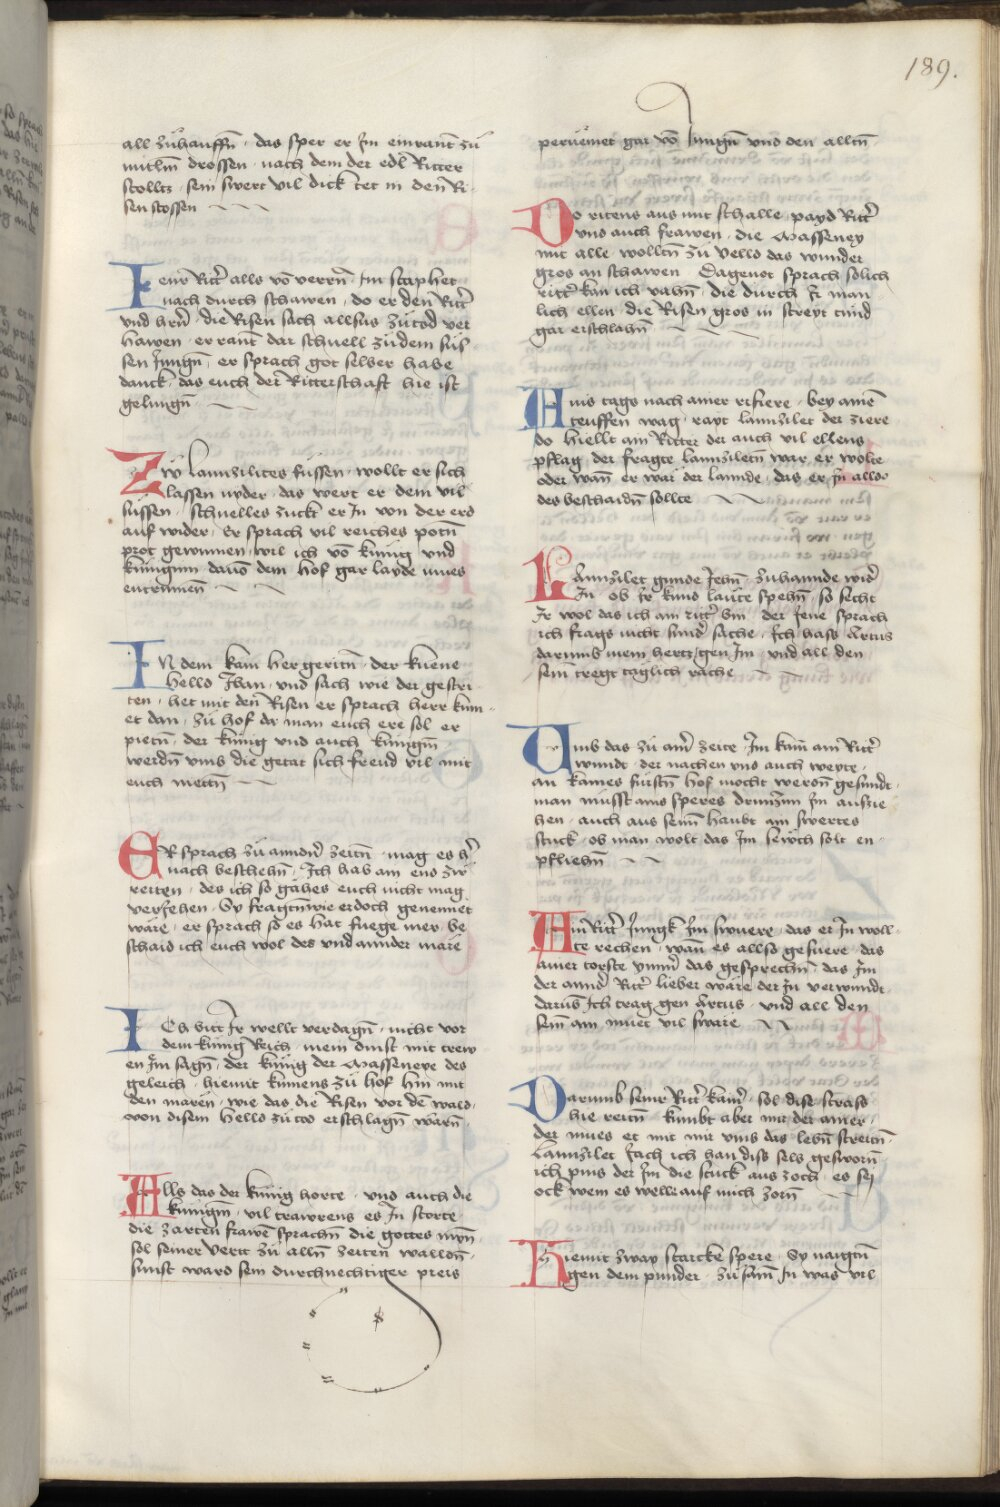 189.
all zuhauffn̄ · das sper er Im einrant zů
mitlm̄ drossen · nach dem der edl Ritter
stolltz · sein swert vil dick tet in den Ri
sen stossen
Iener Ritt̄ alls võ verrn̄ · Im
nach durch schawen · do er den Ritt̄
vnd hrn̄ · die Risen sach allsus zu tod ver
hawen · er rant dar schnell zu dem süs
sen Iungn̄ · er sprach got selber habe
danck · das euch der Ritterschaft hie ist
gelungn̄
Zw lannzilites füssen · wollt er sich
lassen nyder · das wert er dem vil
süssen · schnelles zuckt er In von der erd
auf wider · Er sprach vil reiches potn̄
prot gewinnen · wil ich võ künig vnd
künigin · dem hof gar layde mues
entrinnen
IN dem kam her geritn̄ · der kuene
Helld Iban · vnd sach wie der gestri
ten · het mit den Risen er sprach herr kum
et dan · zu hof da man euch ere sol er
pietn̄ · der künig vnd auch künigin
werdn̄ vmb die getat sich freud vil mit
euch nietn̄
ER sprach zu anndn̄ zeitn̄ · mag es h̄
nach beschehn̄ · Ich hab am end zw
reiten · des ich so gahes euch nicht mag
veriehen · Sy fragtn̄ wie er doch genennet
wäre · er sprach so es hat fuege mer be
schaid ich euch wol des vnd annder märe
ICh bitt Ir wellt verdagn̄ · nicht vor
dem künig Reich · mein dinst mit trew
en Im sagn̄ · der künig der Masseneye des
geleich · hiemit kumens zu hof hin mit
den mären · wie das die Risen vor dē wald
von disem hellds zu tod erschlagn̄ wärn̄
Alls das der künig horte · vnd auch die
künigin · vil trawrens es In storte
die zarten frawē sprachn̄ die gottes myn̄
sol seiner vert zu alln̄ zeiten wallen̄
sunst ward sein durchnechtiger preis
perüemet gar võ Iungn̄ vnd den alltn̄
Do ritens aus mit schalle · payd Ritt̄
vnd auch frawen · die Masseney
mit alle wolltn̄ zu vells das wunder
gros an schawen · Dagenot sprach solich
ritt̄ kan ich vahn̄ · die durch Ir man
lich ellen · die Risen gros in streyt tund
gar erschlahn̄
Ains tags nach ainer rifiere · bey ainē
teuffen wag · rayt lannzilet der ziere
do hiellt ain Ritter der auch vil ellens
pflag · der fragte lannziletn̄ war er wolte
oder wan̄ er wär der lannde · das er In allso
des beschaidn̄ sollte
Lannzilet gunde Iehn̄ · zuhannde wid̄
In · ob Ir kund laute spehn̄ · so secht
Ir wol das ich ain ritt̄ bin · der Iene sprach
ich frags nicht sunder sache · Ich hass Artus
darumb mein hertz gen Im · vnd all den
sein tregt täglich räche
Vmb das zu ain̄ zeite · Im kam ain Ritt̄
wundt · der nachen vnd auch weyte ·
an kaines fürstn̄ hof mocht werdn̄ gesundt ·
man musst ains speres drunzun Im auszie
hen · auch aus seim̄ haubt ain swertes
stuck · ob man wolt das Im seuch solt en
pfliehn̄
Ain Ritt̄ Iungk Im swuere · das er In woll
te rechen · wan̄ es allso gefuere · das
ainer torste das gesprechn̄ · das Im
der annd̄ Ritt̄ lieber wäre der In verwundt
darüb Ich trag gen Artus · vnd all den
sein ain muet vil swäre
Darumb seiner Ritt̄ kain̄ · sol dise strass
hie reitn̄ · kumbt aber mir der ainer
der mues et mit mir vmb das lebn̄ streitn̄ ·
Lannzilet Iach ich han diss sels gesworn̄
ich pins der Im die stuck aus zoch · es sey
ock wem es welle auf mich zorn̄
Hiemit zway starcke spere · Sy naigtn̄
gen dem punder · zu sam̄ In was vil